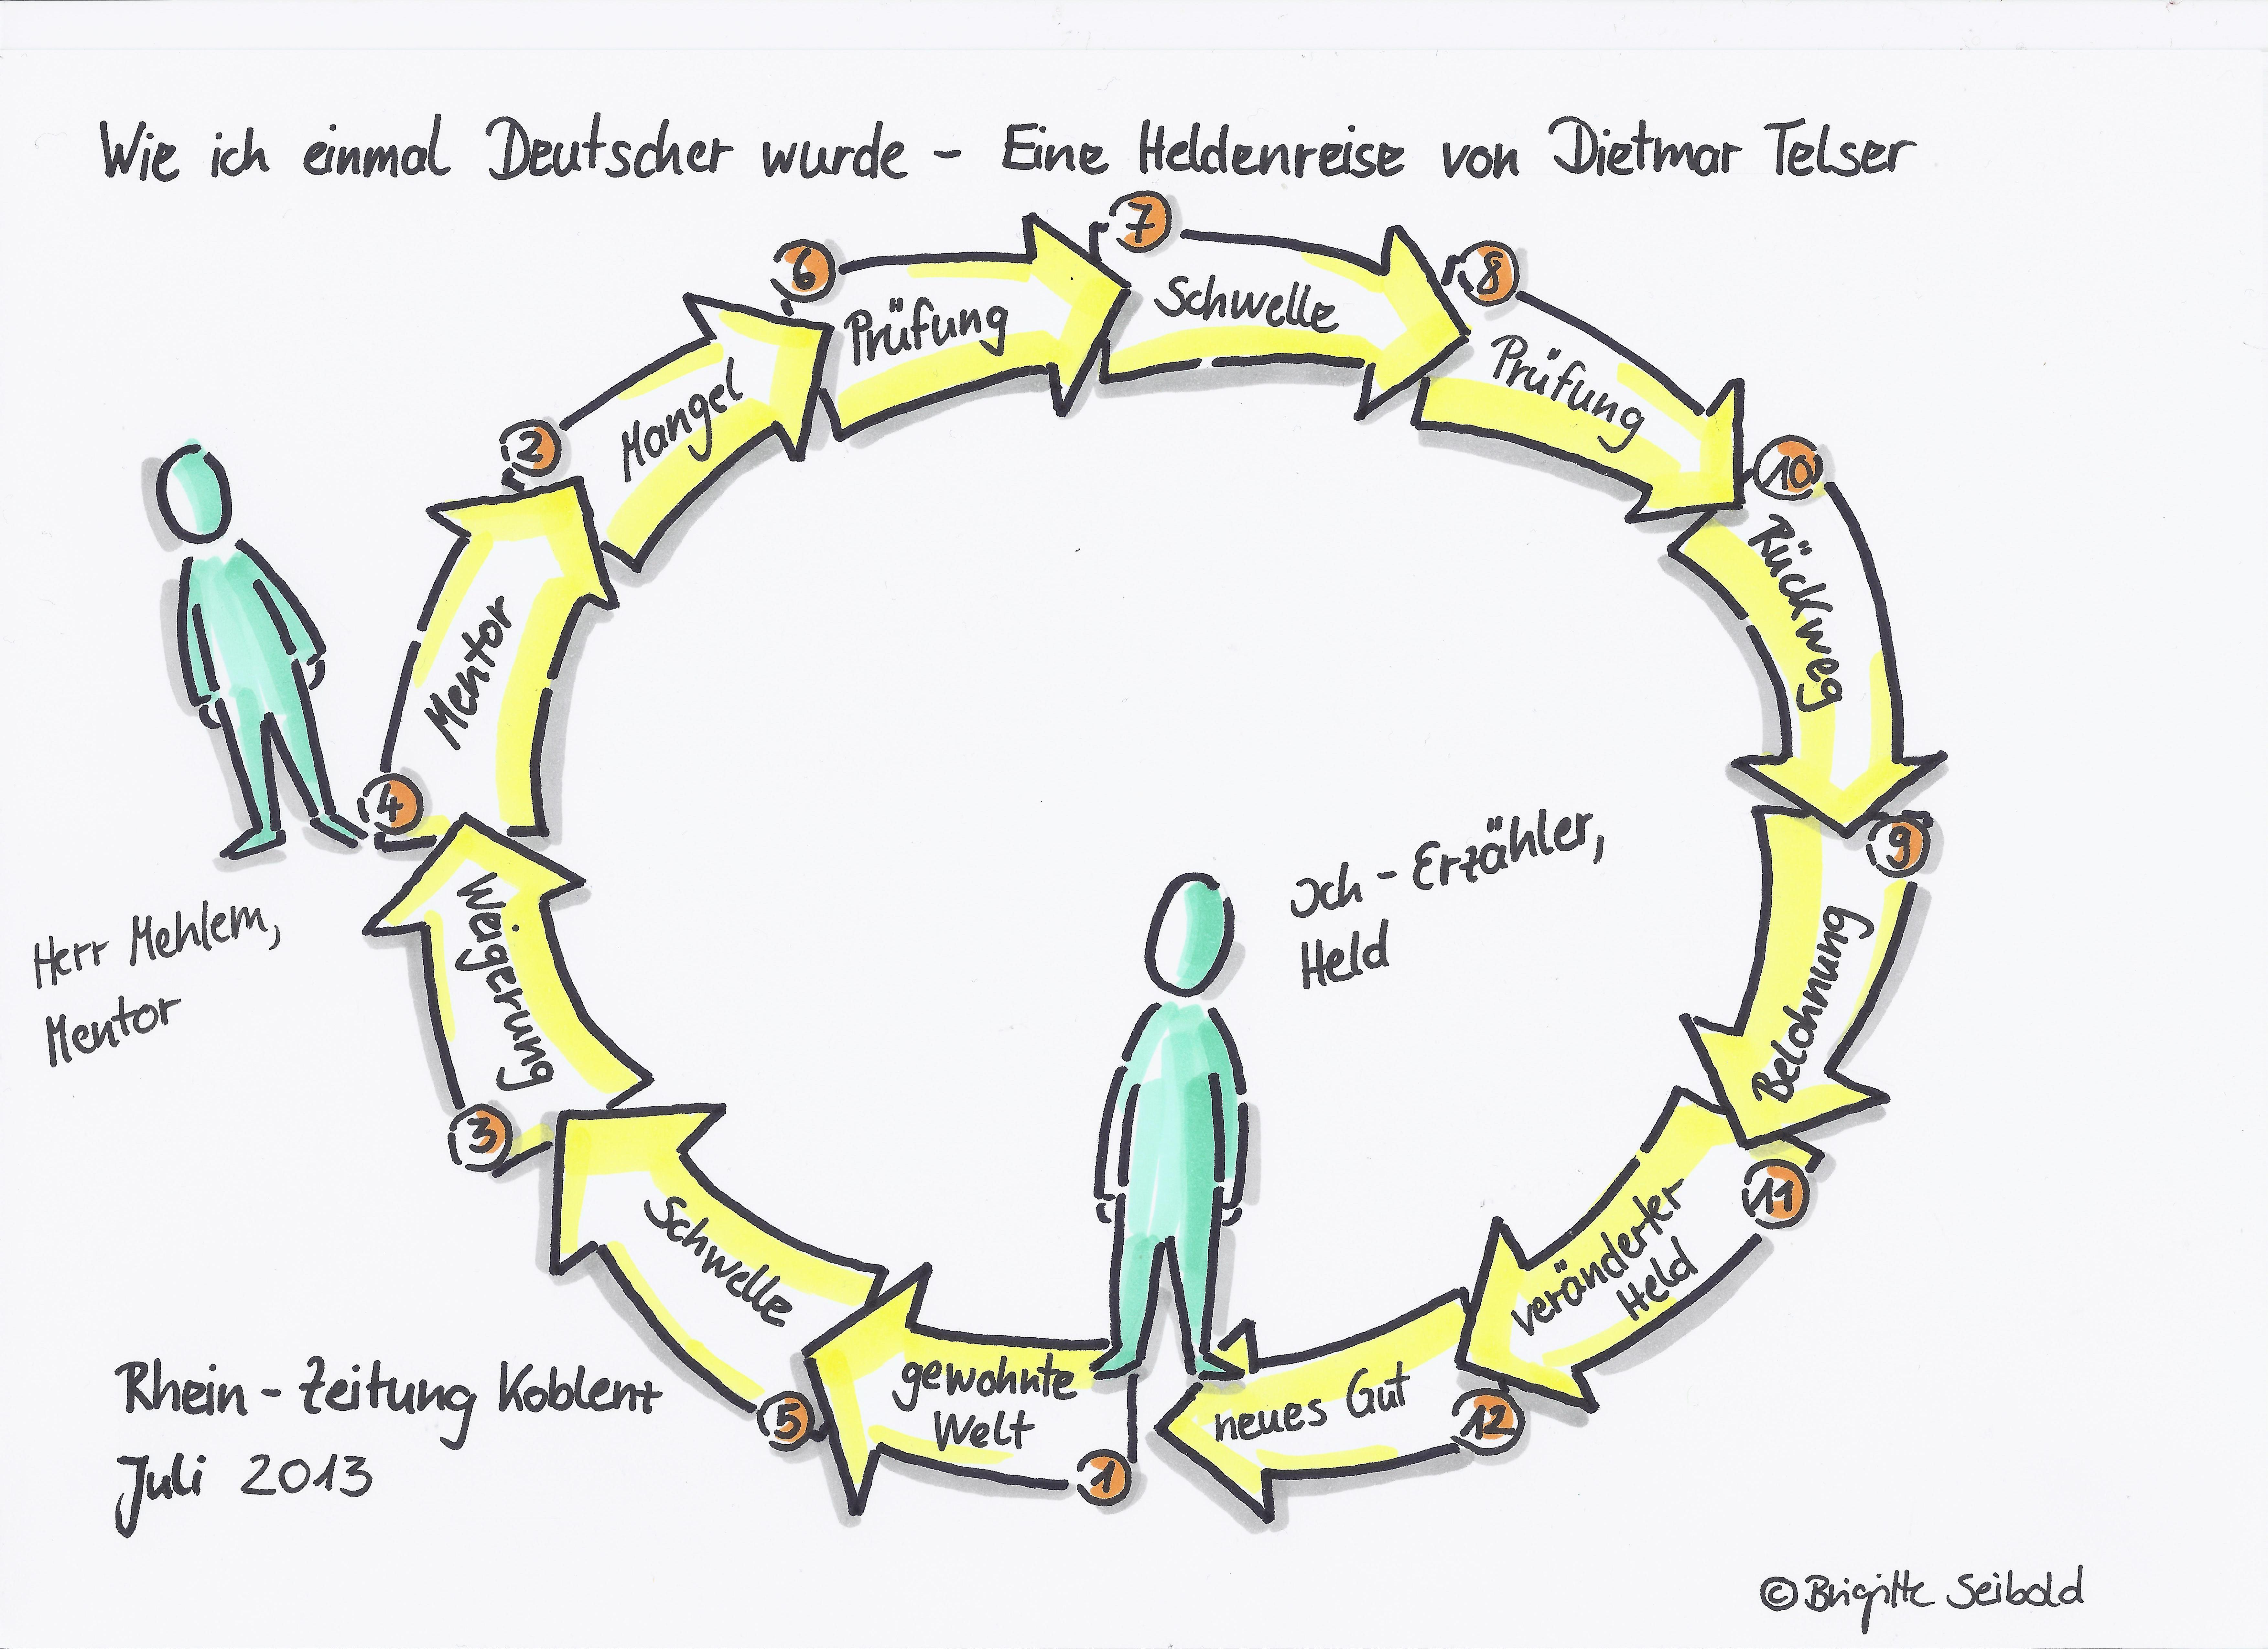 Wie ich einmal Deutscher wurde - Eine Heldenreise von Dietmar Telser
1
gewohnte
Welt
5
Schwelle
3
Weigerung
4
Mentor
2
Mangel
6
Prüfung
7
Schwelle
8
Prüfung
10
Rückweg
9
Belohnung
11
veränderter
Held
12
neues Gut
Herr Mehlem,
Mentor
Ich-Erzähler,
Held
Rhein-Zeitung Koblenz
Juli 2013
© Brigitte Seibold